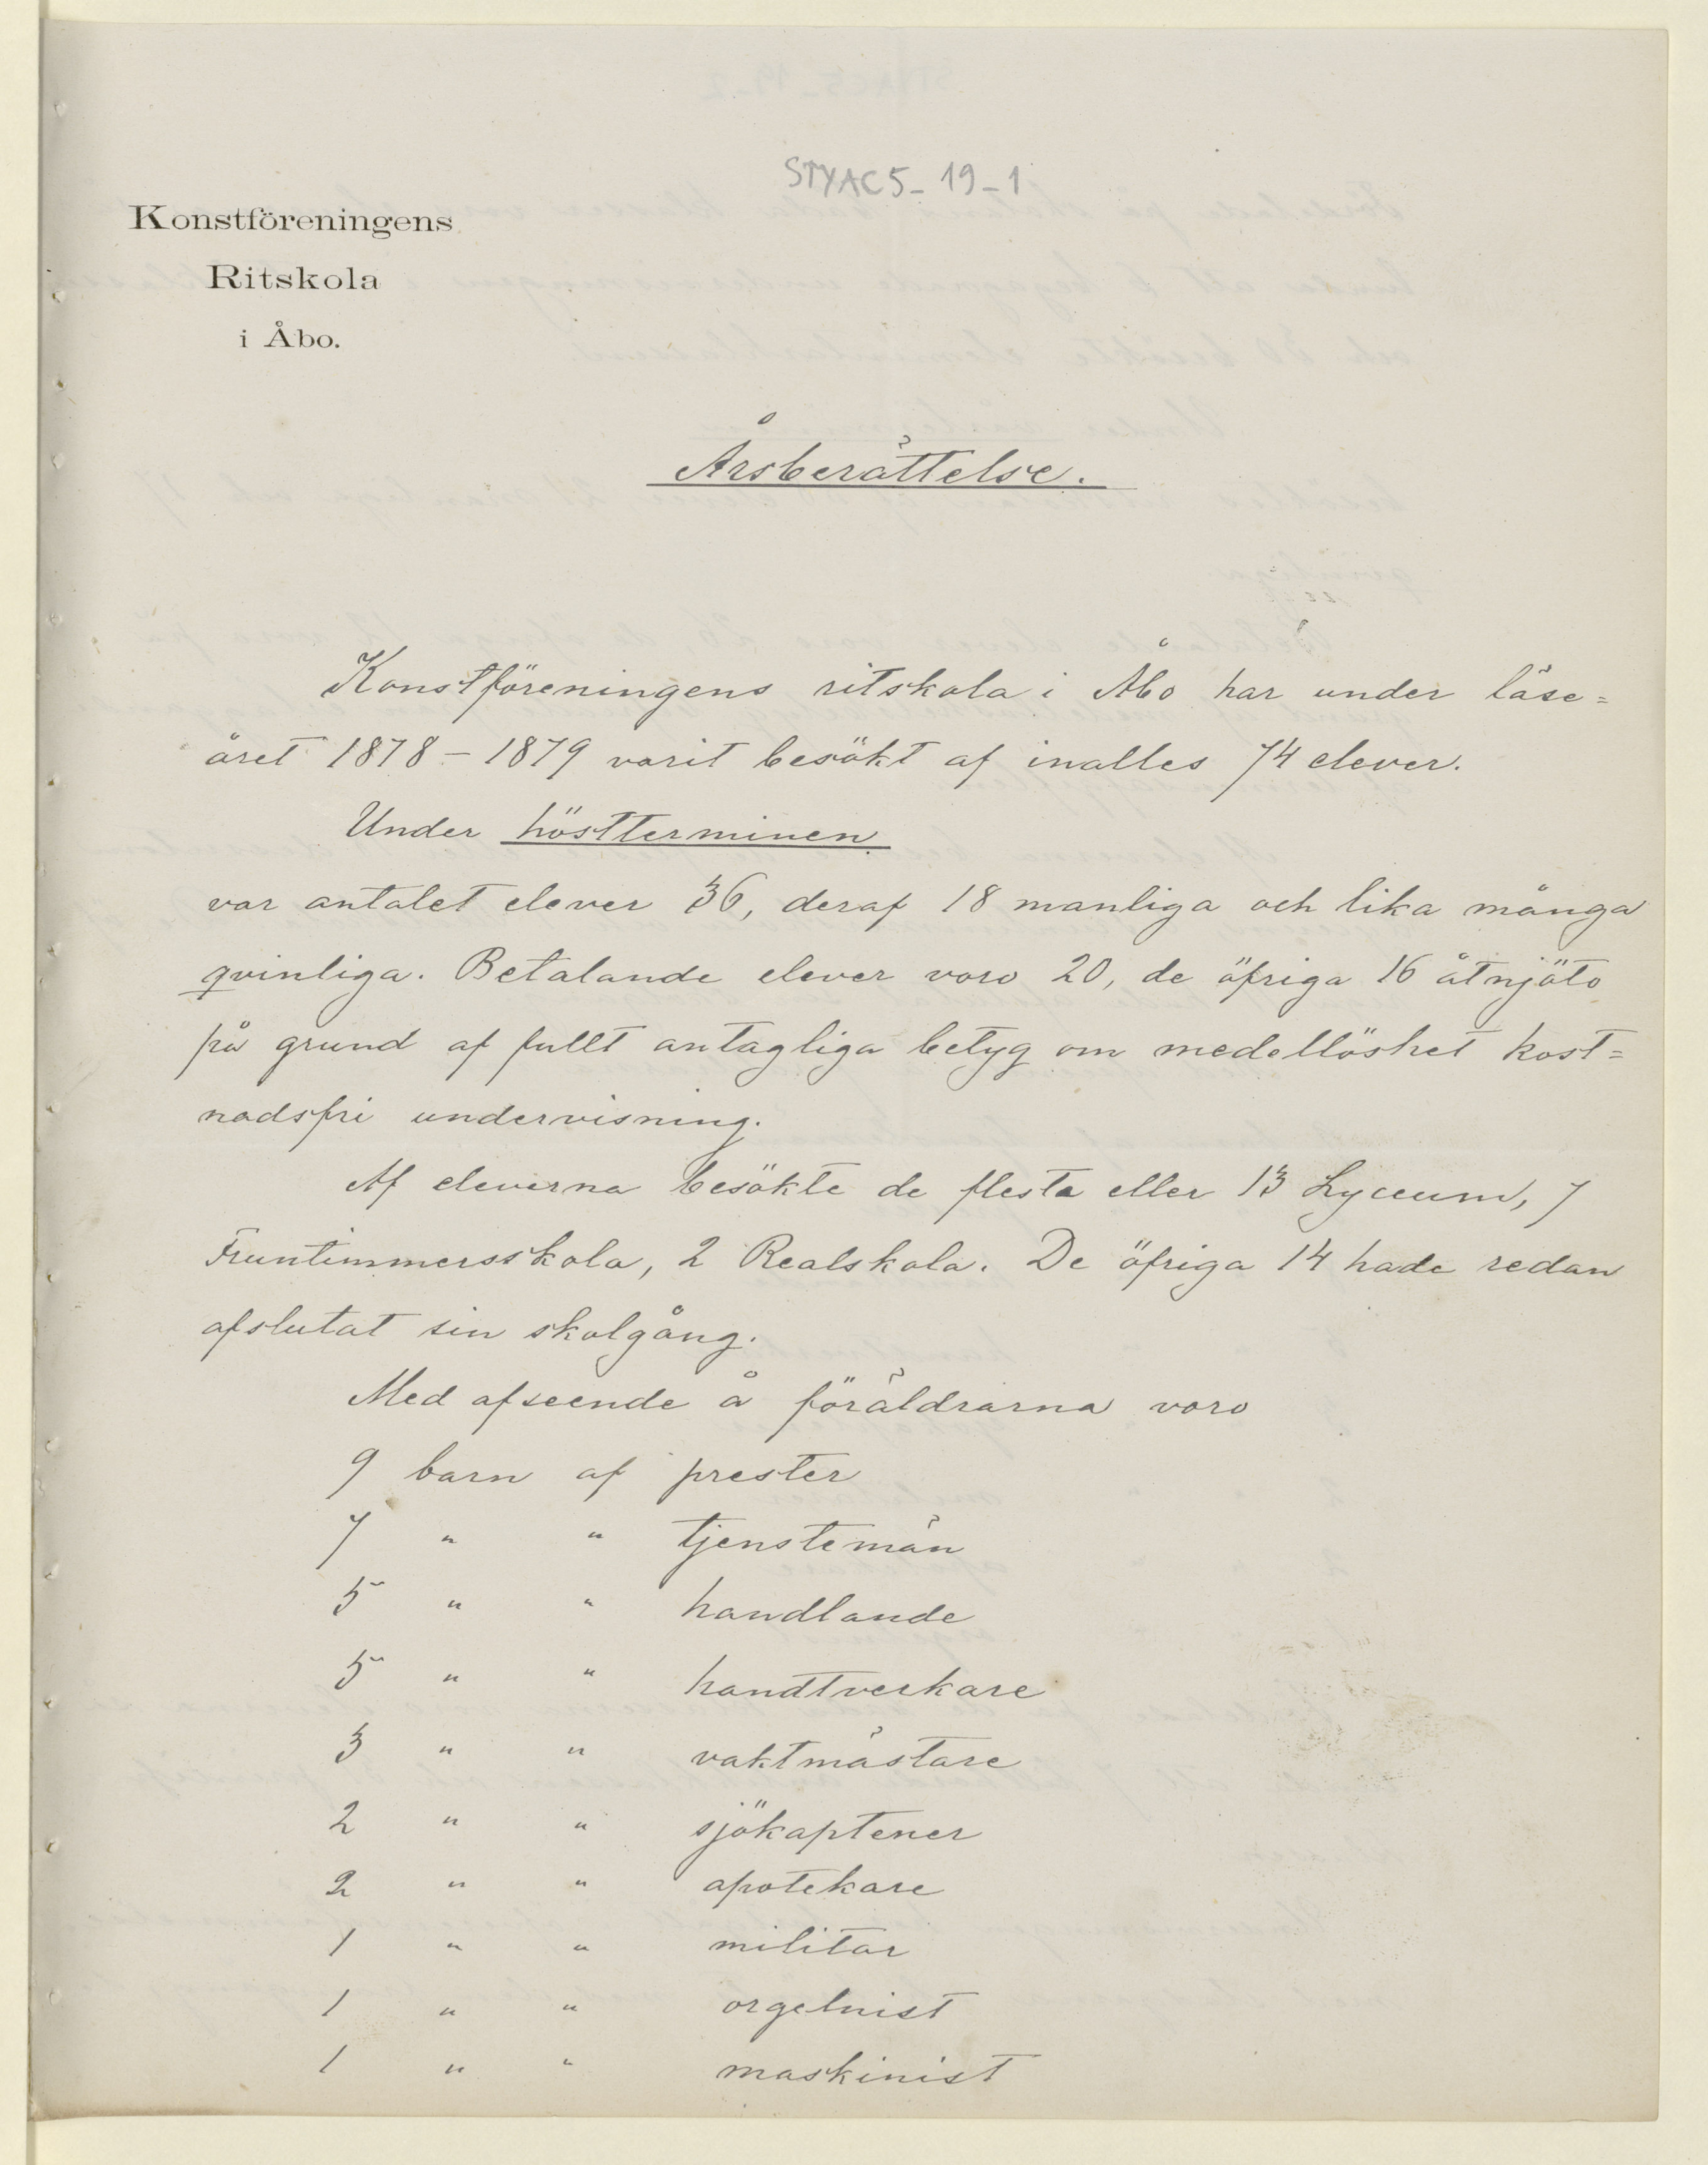 STYAC5-19-1
Konstföreningens
Ritskola
i Åbo.
Årsberättelse.
Konstföreningens ritskola i Åbo har under läse=
året 1878-1879 varit besökt af inalles 74 elever.
Under höstterminen
var antalet elever 36, deraf 18 manliga och lika många
qvinliga. Betalande elever voro 20, de öfriga 16 åtnjöto
på grund af fullt antagliga betyg om medellöshet kost=
nadsfri undervisning.
Af eleverna besökte de flesta eller 13 Lyceum, 7
Fruntimmersskola, 2 Realskola. De öfriga 14 hade redan
afslutat sin skolgång.
Med afseende å föräldrarna voro
9 barn af prester
7 " " tjenstemän
5 " " handlande
5 " " handtverkare
3 " " vaktmästare
2 " " sjökaptener
2 " " apotekare
1 " " militär
1 " " orgelnist
1 " " maskinist